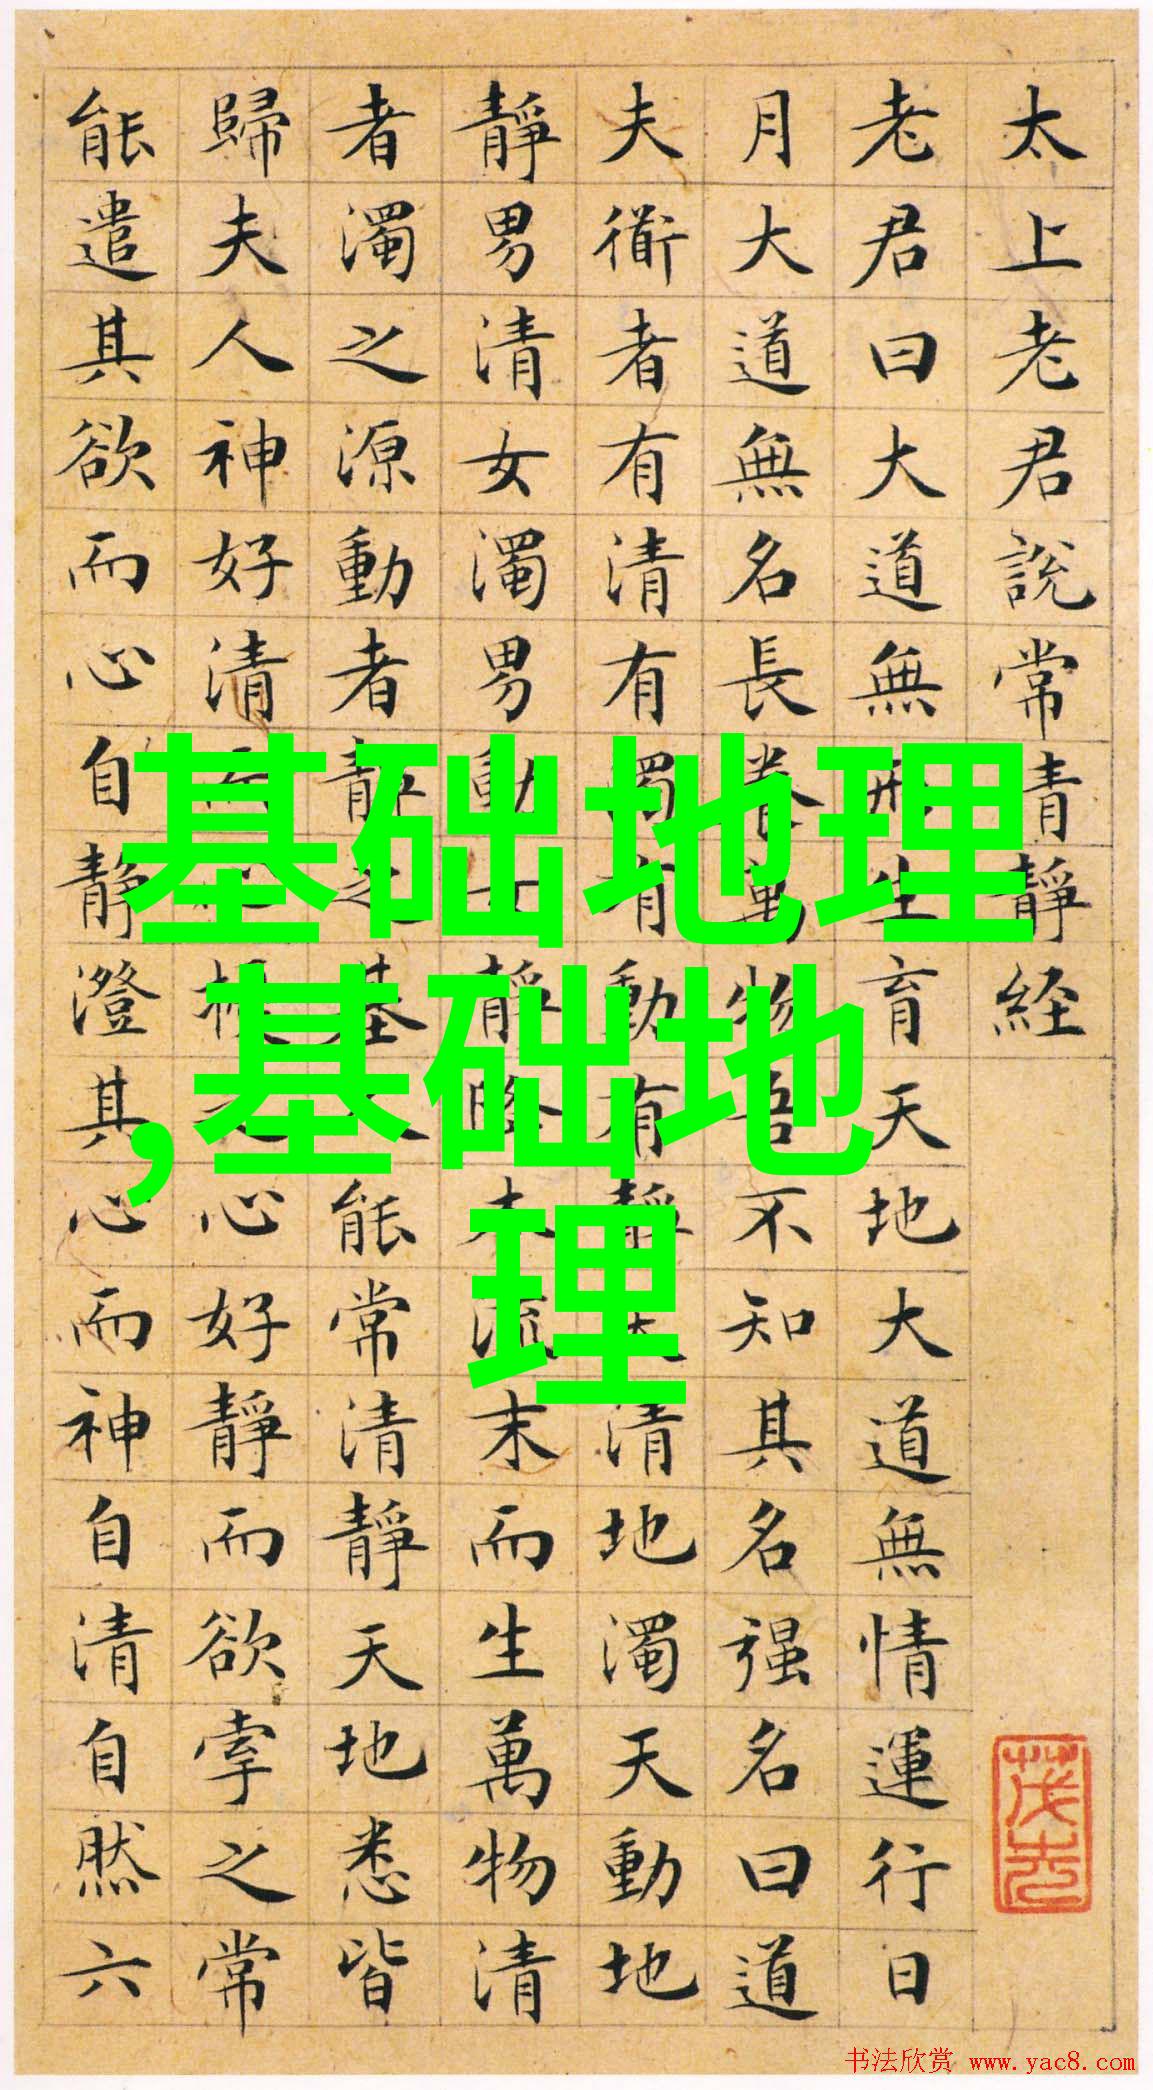 太上老君說常清靜経
老君曰大道無形生育天地大道無情運行日
月大道無名長養萬物吾不知其名强名曰道
夫衟者有清有濁有動有靜天清地濁天動地
靜男清女濁男動女靜降本流末而生萬物清
者濁之源動者靜之基人能常清靜天地悉皆
歸夫人神好清而心擾之心好靜而欲牽之常
能遣其欲而心自靜澄其心而神自清自然六
基础地理
,基础地
理
书法欣赏 www.yac8.com